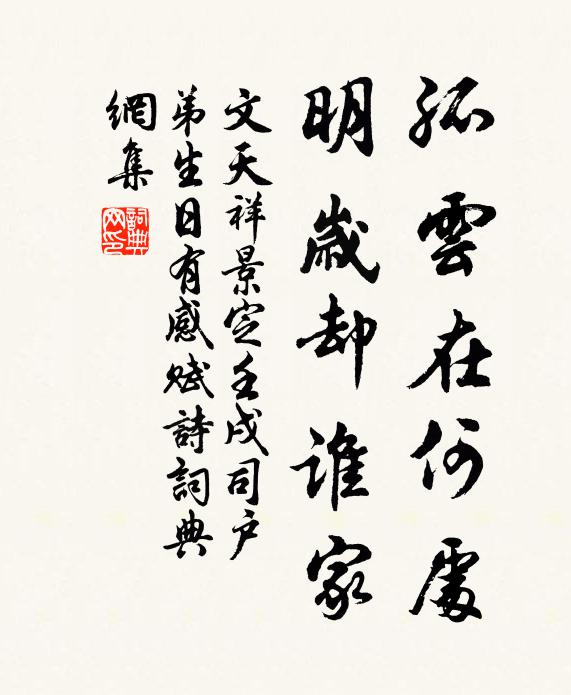 孤雲在何處
明歲却誰家
文天祥景定壬戌司戶
弟生日有感賦詩詞典
網集
詞典網印